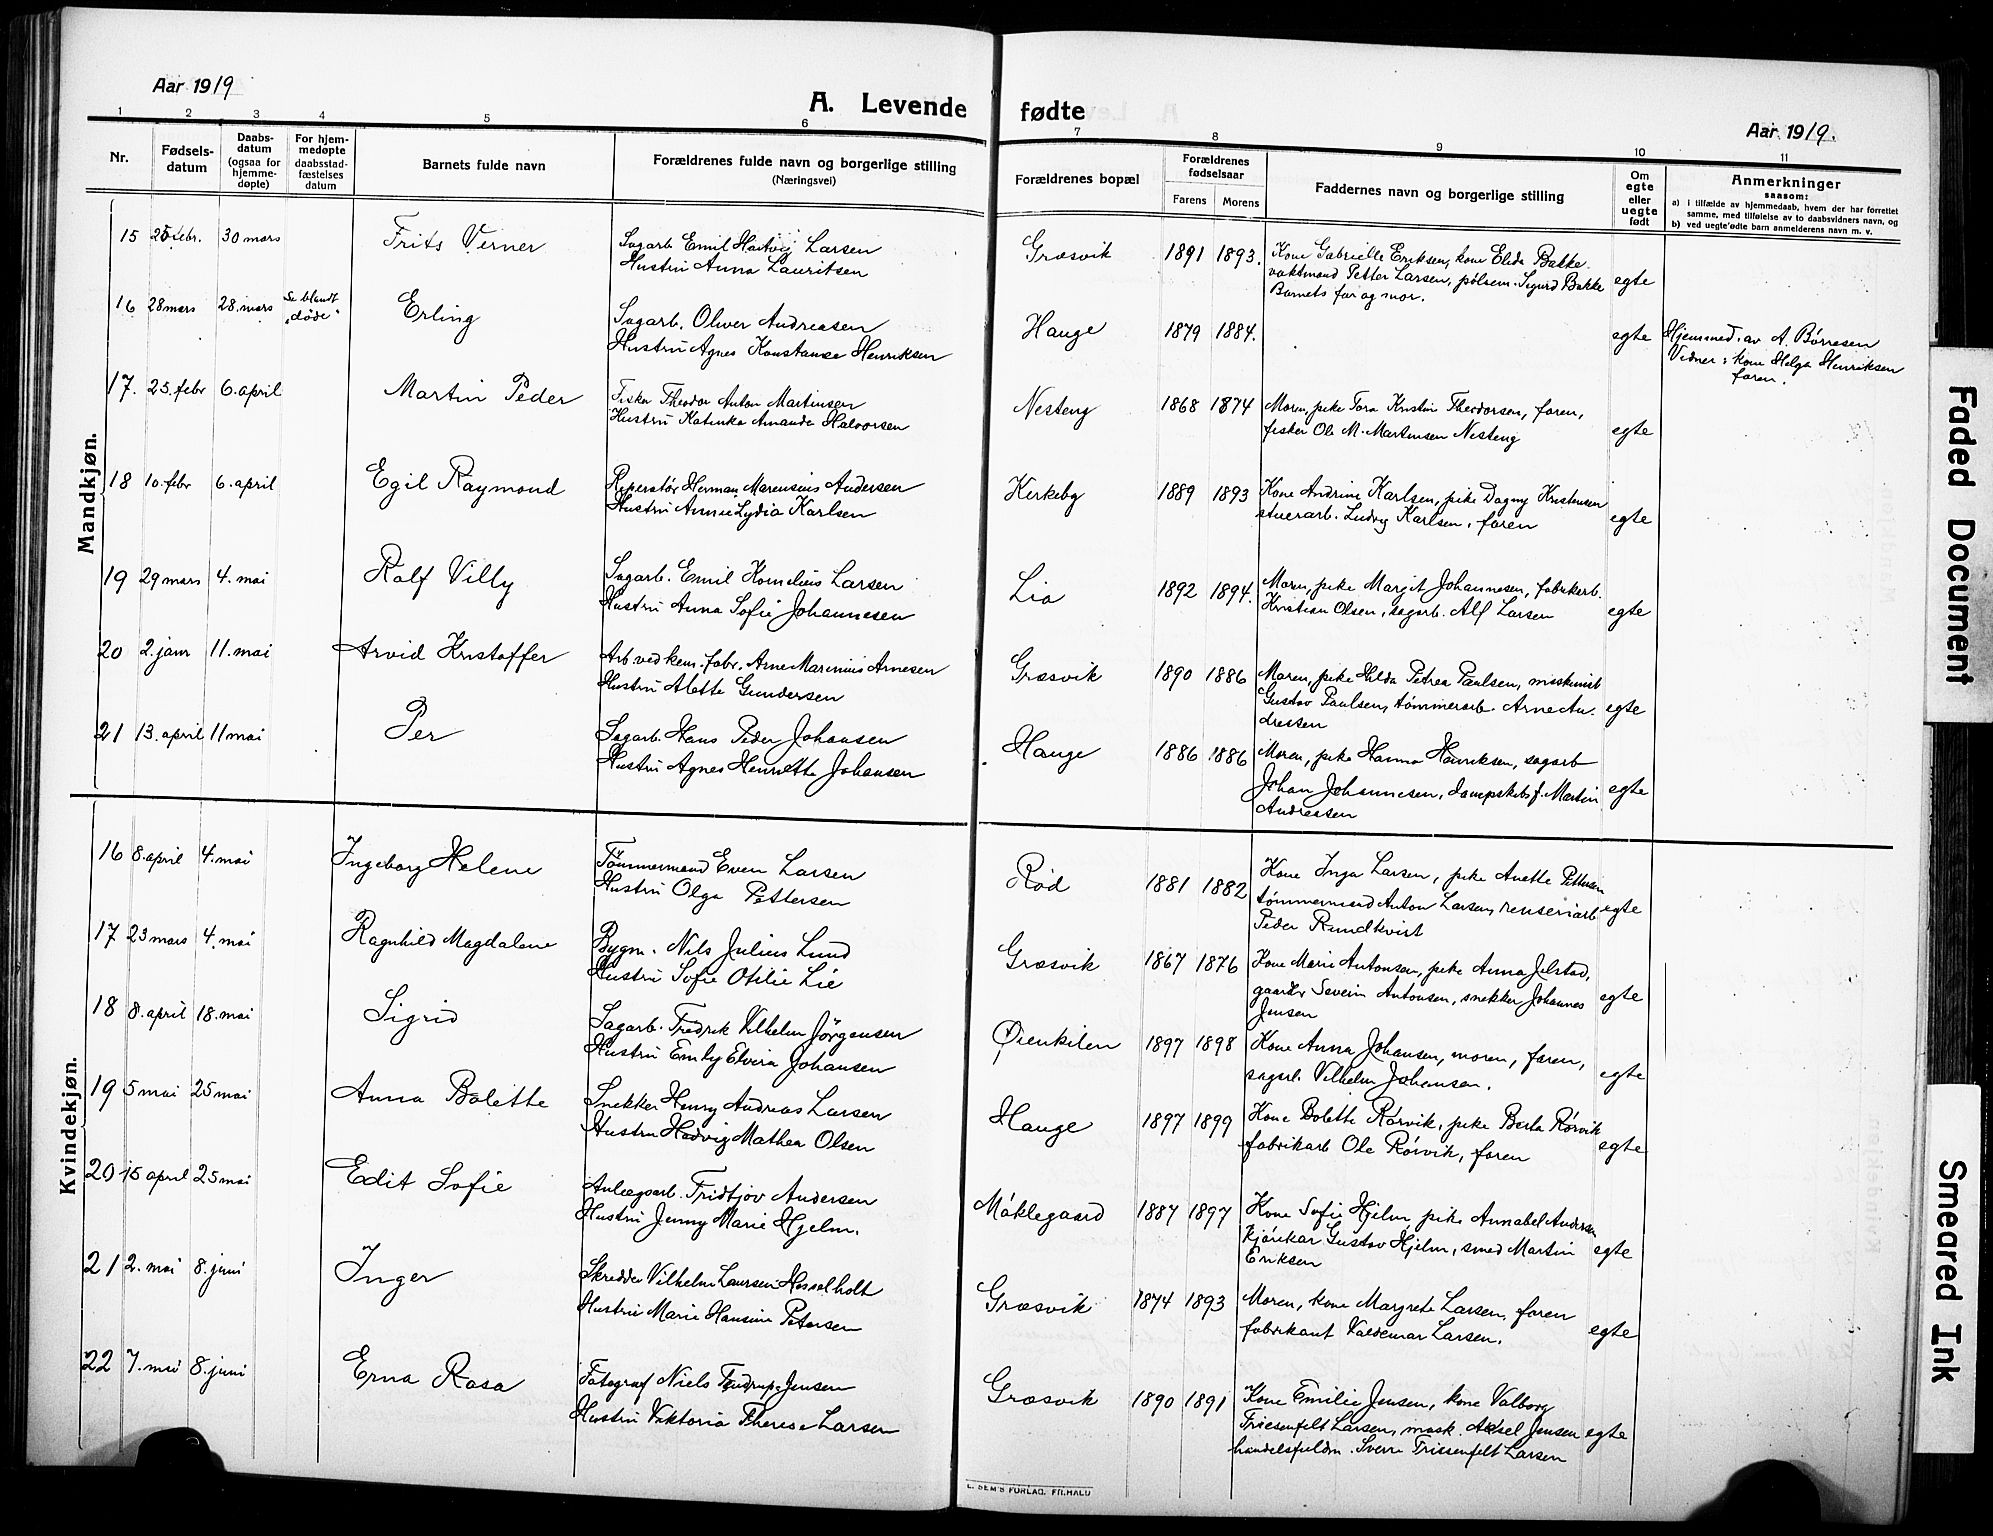 Aar 1919
A. Levende fødte
Aar 1919.
1 2 3 4 5 6 7 8 9 10 11
Nr.
Fødsels-
datum
Daabs-
datum
(ogsaa for
hjemme-
døpte)
For hjem-
medøpte
daabsstad-
fæstelses
datum
Barnets fulde navn
Forældrenes fulde navn og borgerlige stilling
(Næringsvei)
Forældrenes bopæl
Forældrenes
fødselsaar
Farens Morens
Faddernes navn og borgerlige stilling
Om
egte
eller
uegte
født
Anmerkninger
saasom:
a) i tilfælde av hjemmedaab, hvem der har forrettet
samme, med tilføielse av to daabsvidners navn, og
b) ved uegte fødte barn anmelderens navn m. v.
Mandkjøn.
15 25 febr. 30 mars Frits Verner
Sagarb. Emil Hartvig Larsen
Hustru Anna Lauritsen
Græsvik 1891 1893.
Kone Gabrielle Eriksen, kone Elida Bakke
vaktmand Petter Larsen, pølsem. Sigurd Bakke
Barnets far og mor.
egte
16 28 mars 28. mars Se blandt
"døde"
Erling
Sagarb. Oliver Andreasen
Hustru Agnes Konstanse Henriksen
Hauge 1879 1884.
egte
Hjemmed. av A. Børresen
Vidner: kone Helga Henriksen
faren.
17. 25. febr 6. april Martin Peder
Fisker Theodor Anton Martinsen
Hustru Katinka Amanda Halvorsen
Nesteng 1868 1874
Moren, pike Tora Kristin Theodorsen, faren,
fisker Ole M. Martinsen Nesteng
egte
18 10. febr 6. april Egil Raymond
Reperatør Herman Marensius Andersen
Hustru Annie Lydia Karlsen
Kerkeby 1889 1893
Kone Andrine Karlsen, pike Dagny Kristensen
stuerarb. Ludvig Karlsen, faren
egte
19 29 mars 4. mai Rolf Villy
Sagarb. Emil Kornelius Larsen
Hustru Anna Sofie Johannesen
Lia 1892 1894.
Moren, pike Margit Johannesen, fabrikarb.
Kristian Olsen, sagarb. Alf Larsen
egte
20 2. janr 11. mai Arvid Kristoffer
Arb. ved kem. fabr. Arne Marinius Arnesen
Hustru Alette Gundersen
Græsvik 1890 1886
Moren, pike Hilda Petrea Paulsen, maskinist
Gustav Paulsen, tømmerarb. Arne An-
dressen
egte
21 13. april 11 mai Per
Sagarb. Hans Peder Johansen
Hustru Agnes Henriette Johansen
Hauge 1886 1886
Moren, pike Hanna Henriksen, sagarb
Johan Johannesen, dampskibsf. Martin
Andreasen
egte
Kvindekjøn.
16 8. april 4. mai Ingeborg Helene
Tömmermand Even Larsen
Hustru Olga Pettersen
Rød 1881 1882
Kone Inga Larsen, pike Anette Pettersen
tømmermand Anton Larsen, renseriarb
Peder Rundkvist
egte
17 23 mars 4. mai Ragnhild Magdalene
Bygm. Nils Julius Lund
Hustru Sofie Otilie Lie
Græsvik 1867 1876
Kone Marie Antonsen, pike Anna Jelstad,
gaardbr Severin Antonsen, snekker Johannes
Jensen
egte
18 8. april 18. mai Sigrid
Sagarb. Fredrik Vilhelm Jörgensen
Hustru Emly Elvira Johansen
Øienkilen 1897 1898
Kone Anna Johansen, moren, faren,
sagarb. Vilhelm Johansen.
egte
19 5 mai 25 mai Anna Bolette
Snekker Henry Andreas Larsen
Hustru Hedvig Mathea Olsen
Hauge 1897 1899
Kone Bolette Rørvik, pike Berta Rørvik
fabrikarb Ole Rørvik, faren
egte
20 15 april 25 mai Edit Sofie
Anlægsarb. Fridtjov Andersen
Hustru Jenny Marie Hjelm.
Møklegaard 1887 1897
Kone Sofie Hjelm, pike Annabel Andersen
kjørekar Gustav Hjelm, smed Martin
Eriksen
egte
21 2. mai 8. juni Inger
Skredder Vilhelm Laursen Hesselholt
Hustru Marie Hansine Petersen
Græsvik 1874 1893
Moren, kone Margrete Larsen, faren
fabrikant Valdemar Larsen.
egte
22 7. mai 8. juni Erna Rosa
Fotograf Niels Jensen
Hustru Viktoria Therese Larsen
Græsvik 1890 1891
Kone Emilie Jensen, kone Valborg
Friesenfelt Larsen, mask. Aksel Jensen
handelsfuldm. Sverre Friesenfelt Larsen
egte
E. SEM'S FORLAG. FR.HALD
Faded Document
Smeared Ink